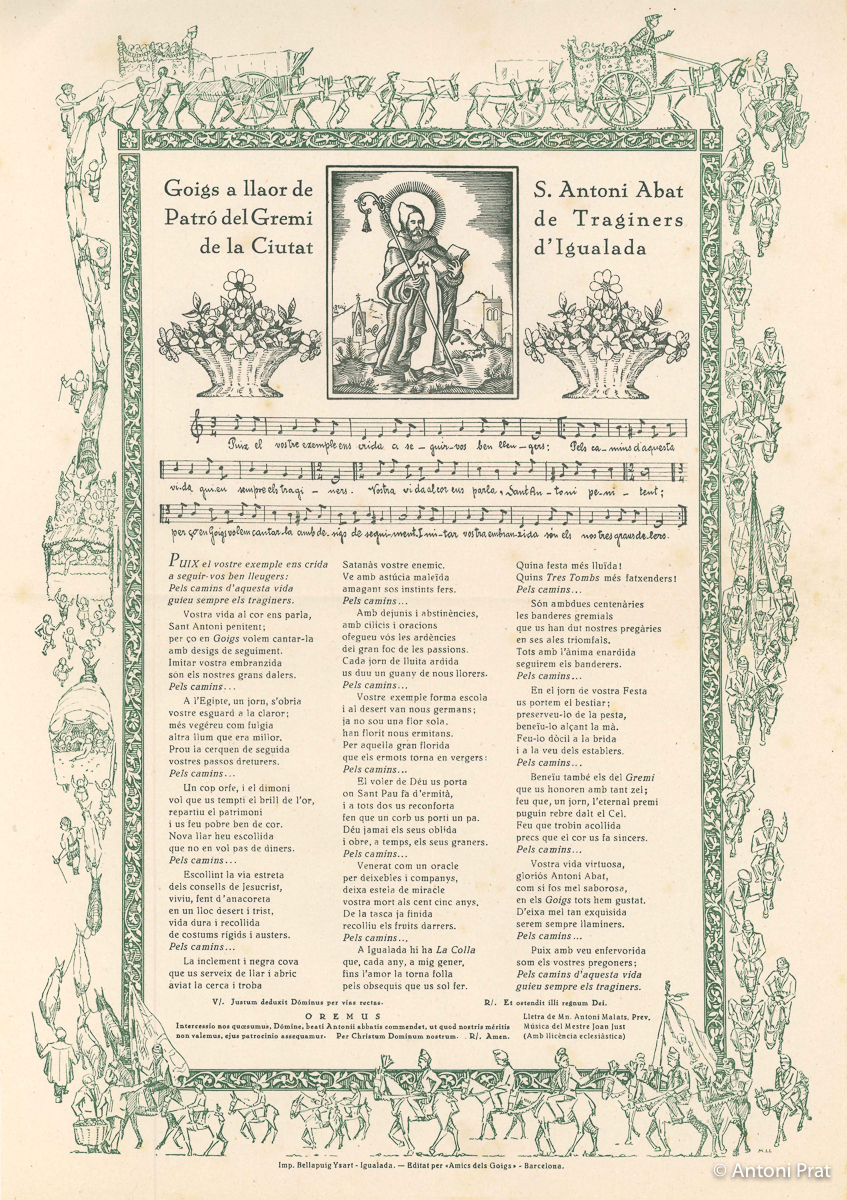 Goigs a llaor de S. Antoni Abat
Patró del Gremi de Traginers
de la Ciutat d'Igualada
Puix el vostre exemple ens crida a se-guir-vos ben lleu-gers: Pels ca-mins d'aquesta
vi-da gui-eu sempre els tragi-ners. Vostra vida al cor ens parla, Sant An-toni pe-ni-tent;
per ço en Goigs volem cantar-la amb de-sigs de segui-ment. Imi-tar vostra embran-zida són els nostres grans da-lers.
PUIX el vostre exemple ens crida
a seguir-vos ben lleugers:
Pels camins d'aquesta vida
guieu sempre els traginers.
Vostra vida al cor ens parla,
Sant Antoni penitent;
per ço en Goigs volem cantar-la
amb desigs de seguiment.
Imitar vostra embranzida
són els nostres grans dalers.
Pels camins...
A l'Egipte, un jorn, s'obria
vostre esguard a la claror;
més vegéreu com fulgia
altra llum que era millor.
Prou la cerquen de seguida
vostres passos dreturers.
Pels camins...
Un cop orfe, i el dimoni
vol que us tempti el brill de l'or,
repartiu el patrimoni
i us feu pobre ben de cor.
Nova llar heu escollida
que no en vol pas de diners.
Pels camins...
Escollint la via estreta
dels consells de Jesucrist,
viviu, fent d'anacoreta
en un lloc desert i trist,
vida dura i recollida
de costums rígids i austers.
Pels camins...
La inclement i negra cova
que us serveix de llar i abric
aviat la cerca i troba
Satanàs vostre enemic.
Ve amb astúcia maleïda
amagant sos instints fers.
Pels camins...
Amb dejunis i abstinències,
amb cilicis i oracions
ofegueu vós les ardències
del gran foc de les passions.
Cada jorn de lluita ardida
us duu un guany de nous llorers.
Pels camins...
Vostre exemple forma escola
i al desert van nous germans;
ja no sou una flor sola,
han florit nous ermitans.
Per aquella gran florida
que els ermots torna en vergers:
Pels camins...
El voler de Déu us porta
on Sant Pau fa d'ermità,
i a tots dos us reconforta
fen que un corb us porti un pa.
Déu jamai els seus oblida
i obre, a temps, els seus graners.
Pels camins...
Venerat com un oracle
per deixebles i companys,
deixa estela de miracle
vostra mort als cent cinc anys.
De la tasca ja finida
recolliu els fruits darrers.
Pels camins...
A Igualada hi ha La Colla
que, cada any, a mig gener,
fins l'amor la torna folla
pels obsequis que us sol fer.
Quina festa més lluïda!
Quins Tres Tombs més fatxenders!
Pels camins...
Són ambdues centenàries
les banderes gremials
que us han dut nostres pregàries
en ses ales triomfals.
Tots amb l'ànima enardida
seguirem els banderers.
Pels camins...
En el jorn de vostra Festa
us portem el bestiar;
preserveu-lo de la pesta,
beneïu-lo alçant la mà.
Feu-lo dòcil a la brida
i a la veu dels establers.
Pels camins...
Beneïu també els del Gremi
que us honoren amb tant zel;
feu que, un jorn, l'eternal premi
puguin rebre dalt el Cel.
Feu que trobin acollida
precs que el cor us fa sincers.
Pels camins...
Vostra vida virtuosa,
gloriós Antoni Abat,
com si fos mel saborosa,
en els Goigs tots hem gustat.
D'eixa mel tan exquisida
serem sempre llaminers.
Pels camins...
Puix amb veu enfervorida
som els vostres pregoners;
Pels camins d'aquesta vida
guieu sempre els traginers.
V/. Justum deduxit Dóminus per vias rectas. R/. Et ostendit illi regnum Dei.
OREMUS
Intercessio nos quœsumus, Dómine, beati Antonii abbatis commendet, ut quod nostris méritis
non valemus, ejus patrocinio assequamur. Per Christum Dominum nostrum. R/. Amen.
Lletra de Mn. Antoni Malats, Prev.
Música del Mestre Joan Just
(Amb llicència eclesiàstica)
Imp. Bellapuig Ysart - Igualada. — Editat per «Amics dels Goigs» - Barcelona.
© Antoni Prat